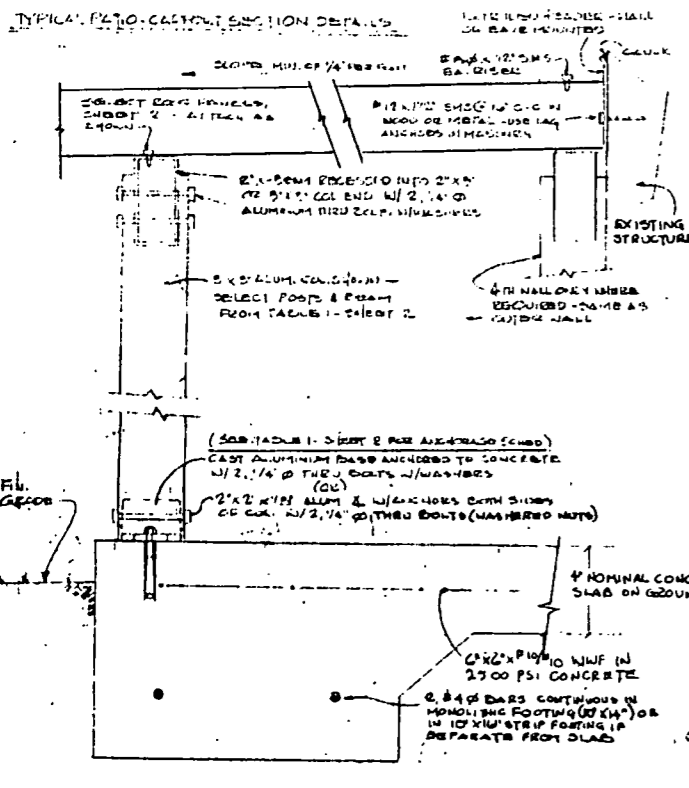 TYPICAL PATIO-CARPORT SECTION DETAILS
EXTRUDED HEADER - WALL
OR EAVE MOUNTED
CAULK
SLOPED MIN. OF 1/4" PER FOOT
EA. RISER
SELECT ROOF PANELS,
SHEET 2 - ATTACH AS
SHOWN
WOOD OR METAL - USE LAG
ANCHORS IN MASONRY
2" X BEAM RECESSED INTO 2"X3"
OR 3"X3" COL END W/ 2, 1/4" Ø
ALUMINUM THRU BOLTS W/WASHERS
EXISTING
STRUCTURE
3 X 3 ALUM. COL. SHOWN -
SELECT POSTS & BEAM
FROM TABLE 1 - SHEET 2
4TH WALL ONLY WHERE
REQUIRED - SAME AS
OUTER WALL
(SEE TABLE 1 - SHEET 2 FOR ANCHORAGE SCHED)
CAST ALUMINUM BASE ANCHORED TO CONCRETE
W/ 2, 1/4" Ø THRU BOLTS W/WASHERS
(OR)
2"X2"X1/8" ALUM W/ANCHORS BOTH SIDES
OF COL. W/ 2, 1/4" Ø THRU BOLTS (WASHERED NUTS)
FIN.
GRADE
4" NOMINAL CONC
SLAB ON GROUND
6"X6"X#10/#10 WWF IN
2500 PSI CONCRETE
2, #4 Ø BARS CONTINUOUS IN
MONOLITHIC FOOTING (10"X14") OR
IN 10"X16" STRIP FOOTING IF
SEPARATE FROM SLAB